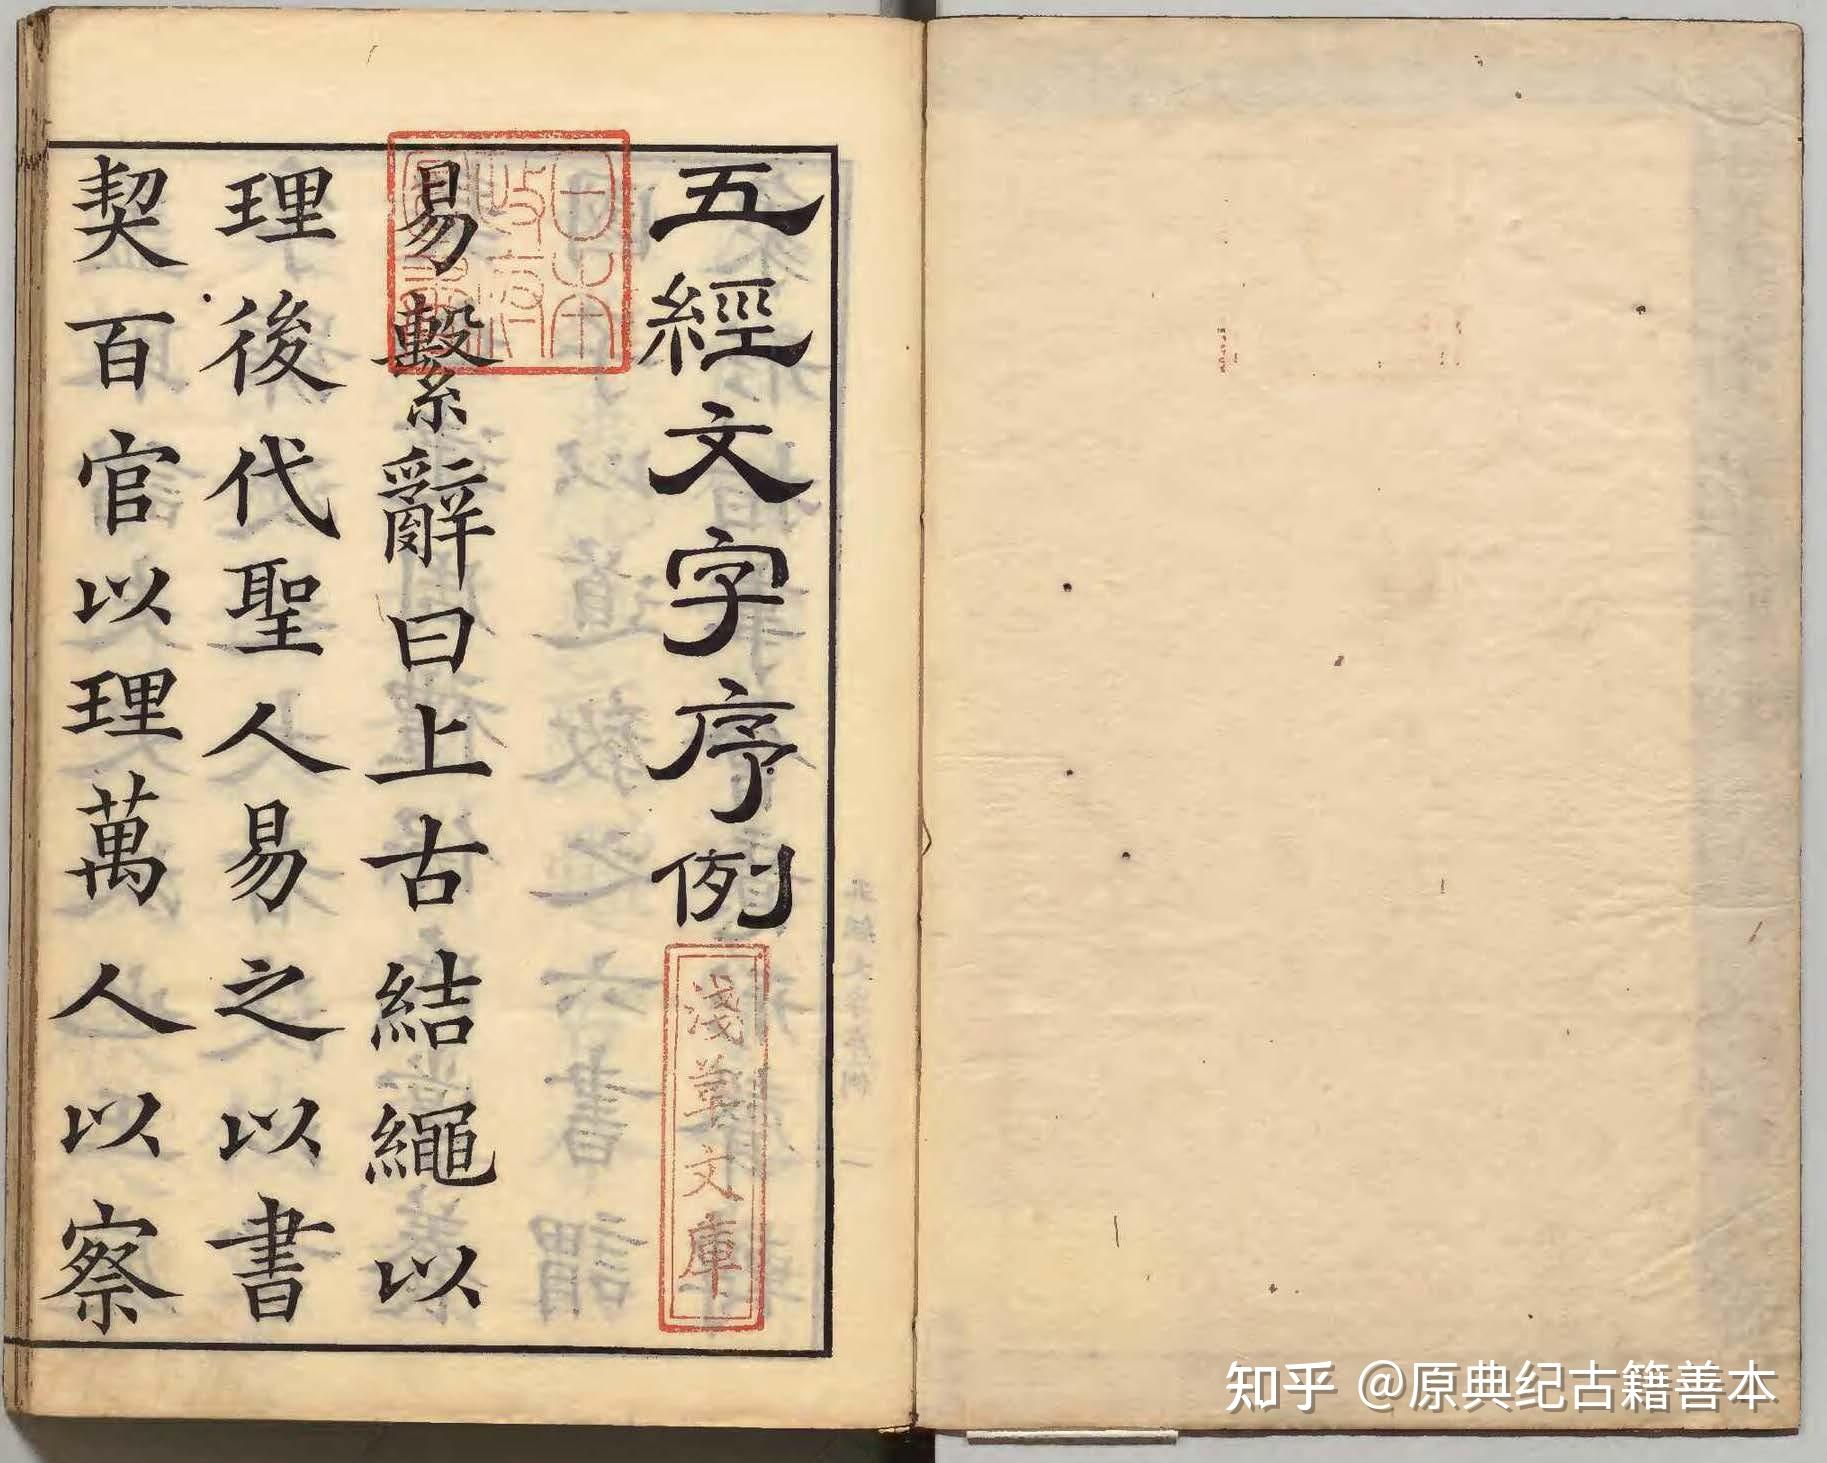 五經文字序例
易繫辭曰上古結繩以
理後代聖人易之以書
契百官以理萬人以察
淺草文庫
日本政府圖書
知乎 @原典纪古籍善本